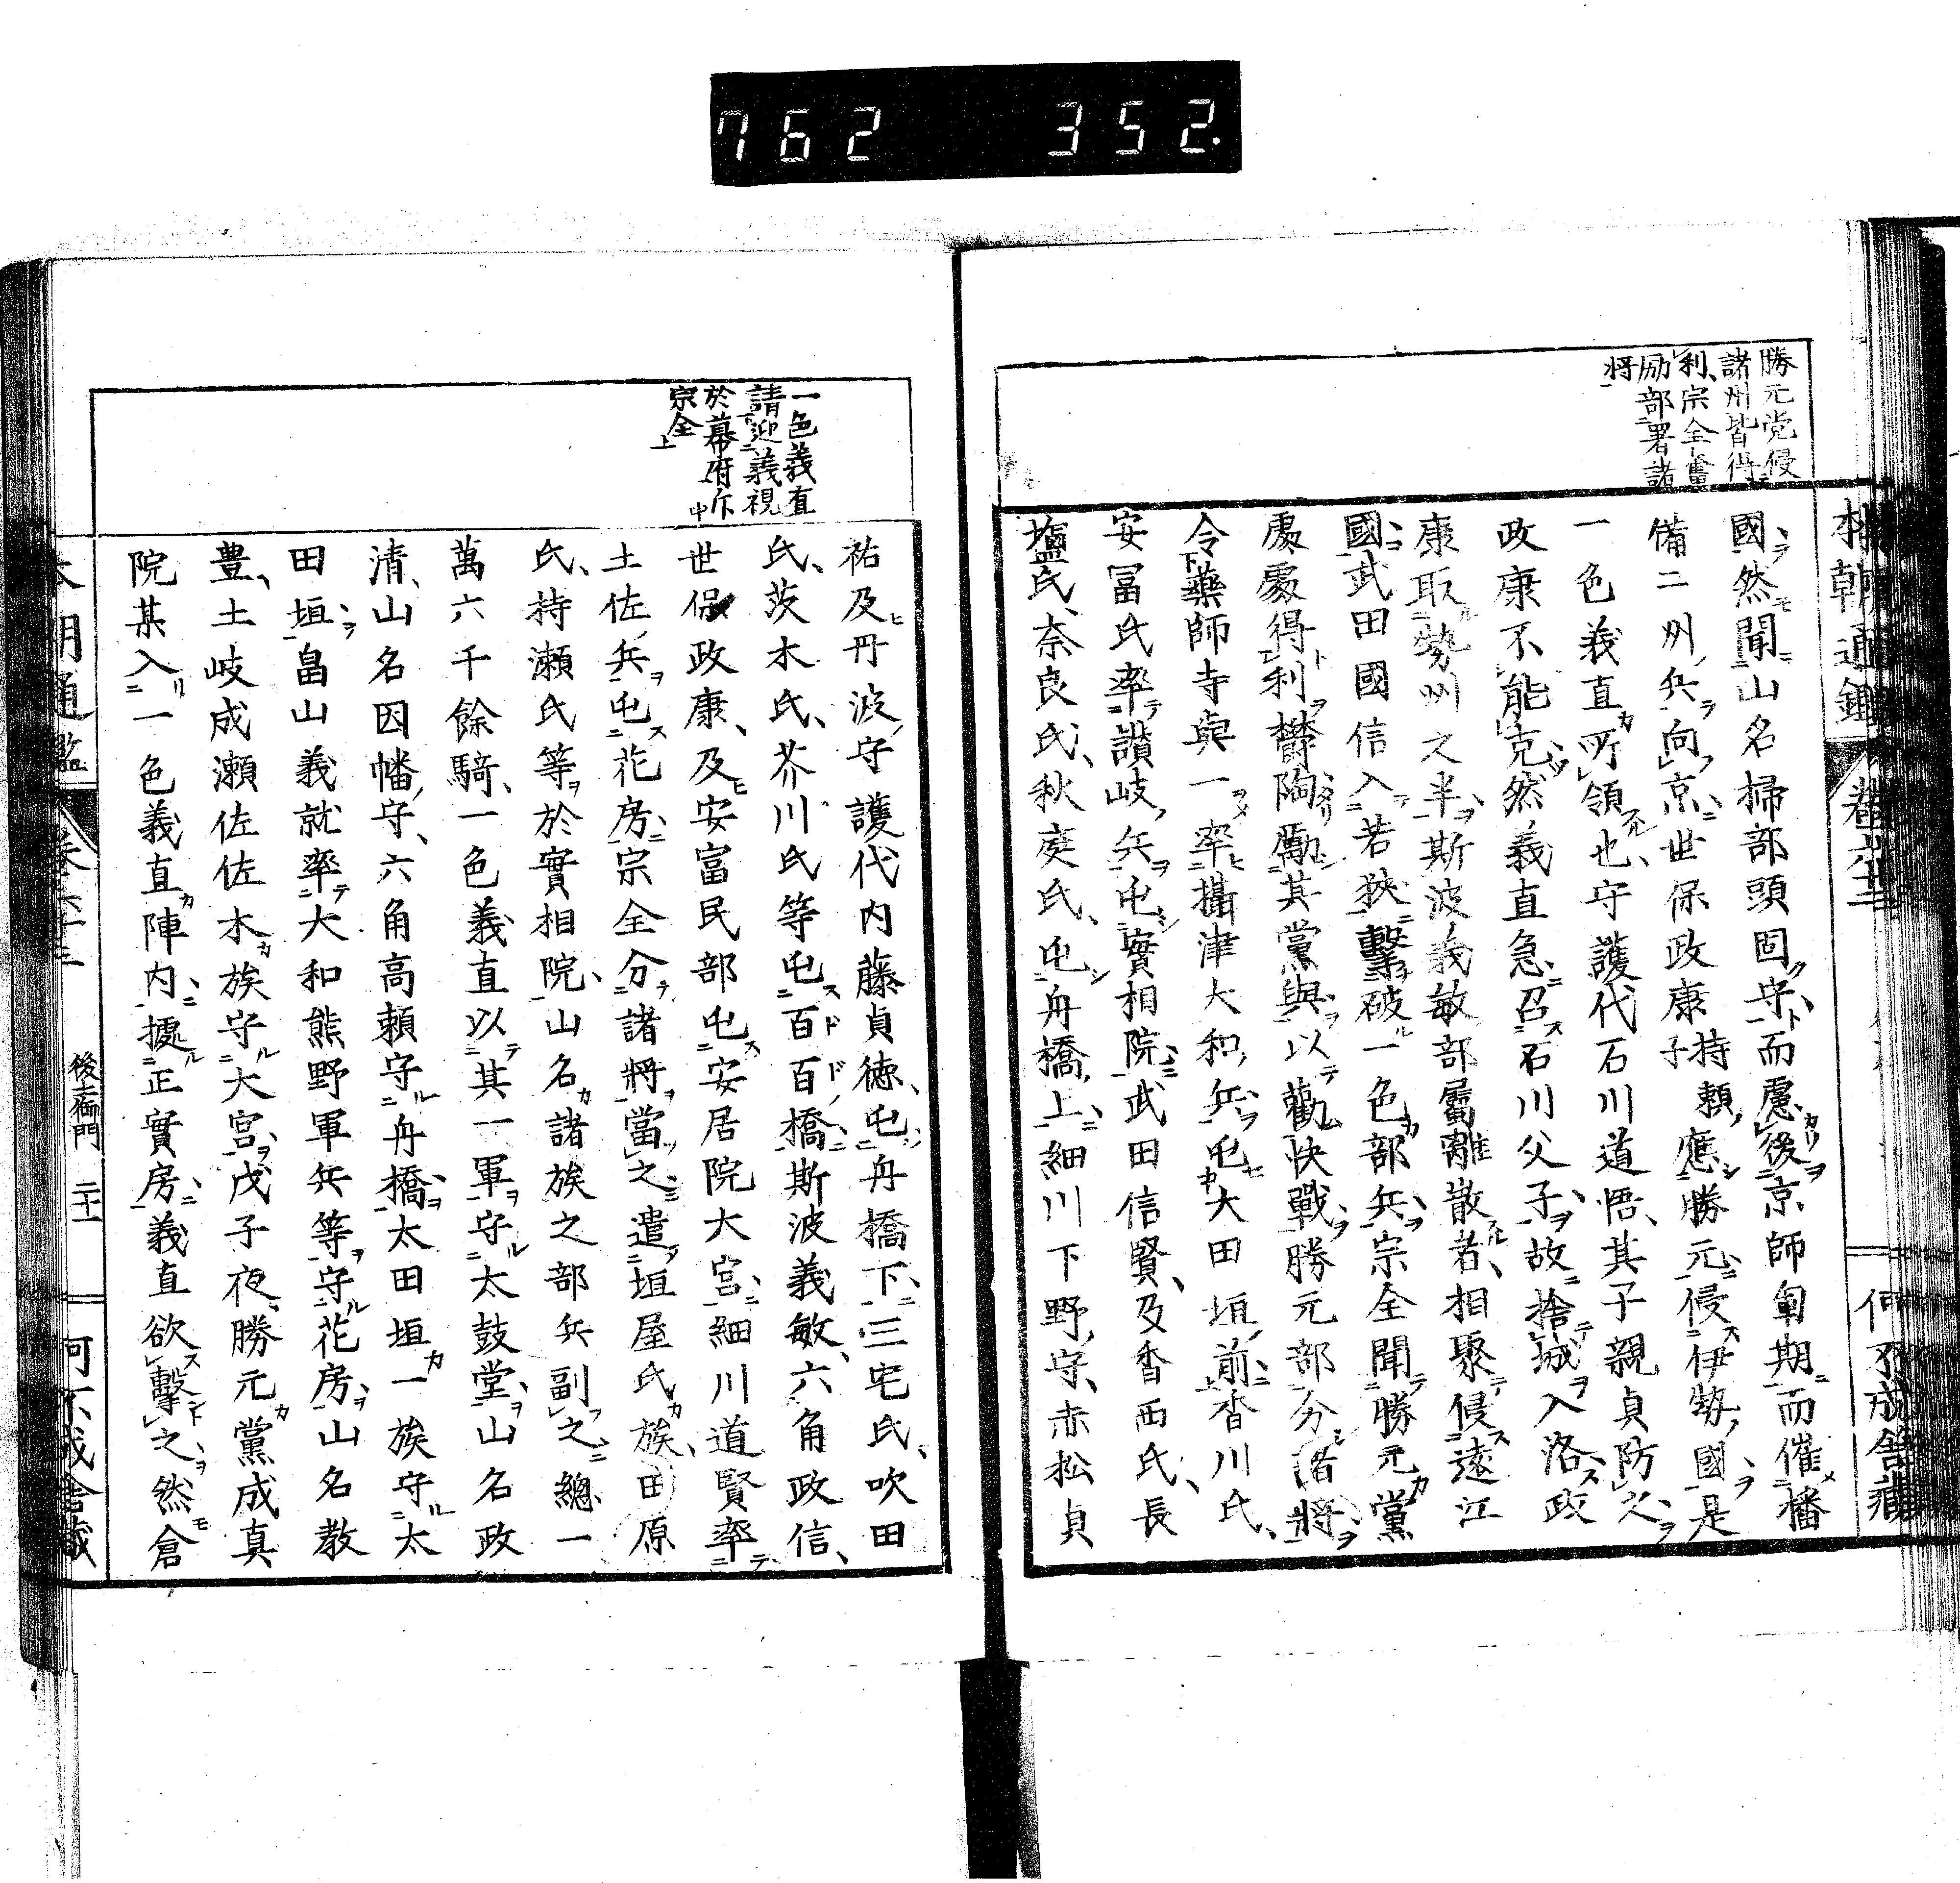 762 352.
勝元党侵
諸州皆得
利、宗全奮
励部署諸
将
本朝通鑑
何不成舎蔵
國然聞山名掃部頭固守而慮後京師軍期而催播
備二州兵向京世保政康子持頼應勝元侵伊勢國是
一色義直所領也守護代石川道悟其子親貞防之
政康不能克然義直急召石川父子故捨城入洛政
康取勢州之半斯波義敏部屬離散者相聚侵遠江
國武田國信入若狹擊破一色部兵宗全聞勝元黨
處處得利欝陶勵其黨與以勸快戰勝元部分諸將
令藥師寺與一率攝津大和兵屯大田垣前香川氏、
安冨氏率讃岐兵屯實相院武田信賢、及香西氏、長
塩氏、奈良氏、秋庭氏、屯舟橋上細川下野守、赤松貞
一色義直
請迎義視
於幕府斥
宗全
祐及丹波守護代内藤貞徳、屯舟橋下、三宅氏、吹田
氏、茨木氏、芥川氏等屯百百橋斯波義敏、六角政信、
世保政康、及安富民部屯安居院大宮細川道賢率
土佐兵屯花房宗全分諸將當之遣垣屋氏族、田原
氏、持瀬氏等於實相院、山名諸族之部兵副之總一
萬六千餘騎、一色義直以其一軍守太鼓堂山名政
清、山名因幡守、六角高頼守舟橋太田垣一族守太
田垣畠山義就率大和熊野軍兵等守花房山名教
豊、土岐成瀬佐佐木族守大宮戊子夜、勝元黨成真
院某入一色義直陣内據正實房義直欲擊之然倉
本朝通鑑
後土御門 二十一
何不成舎蔵